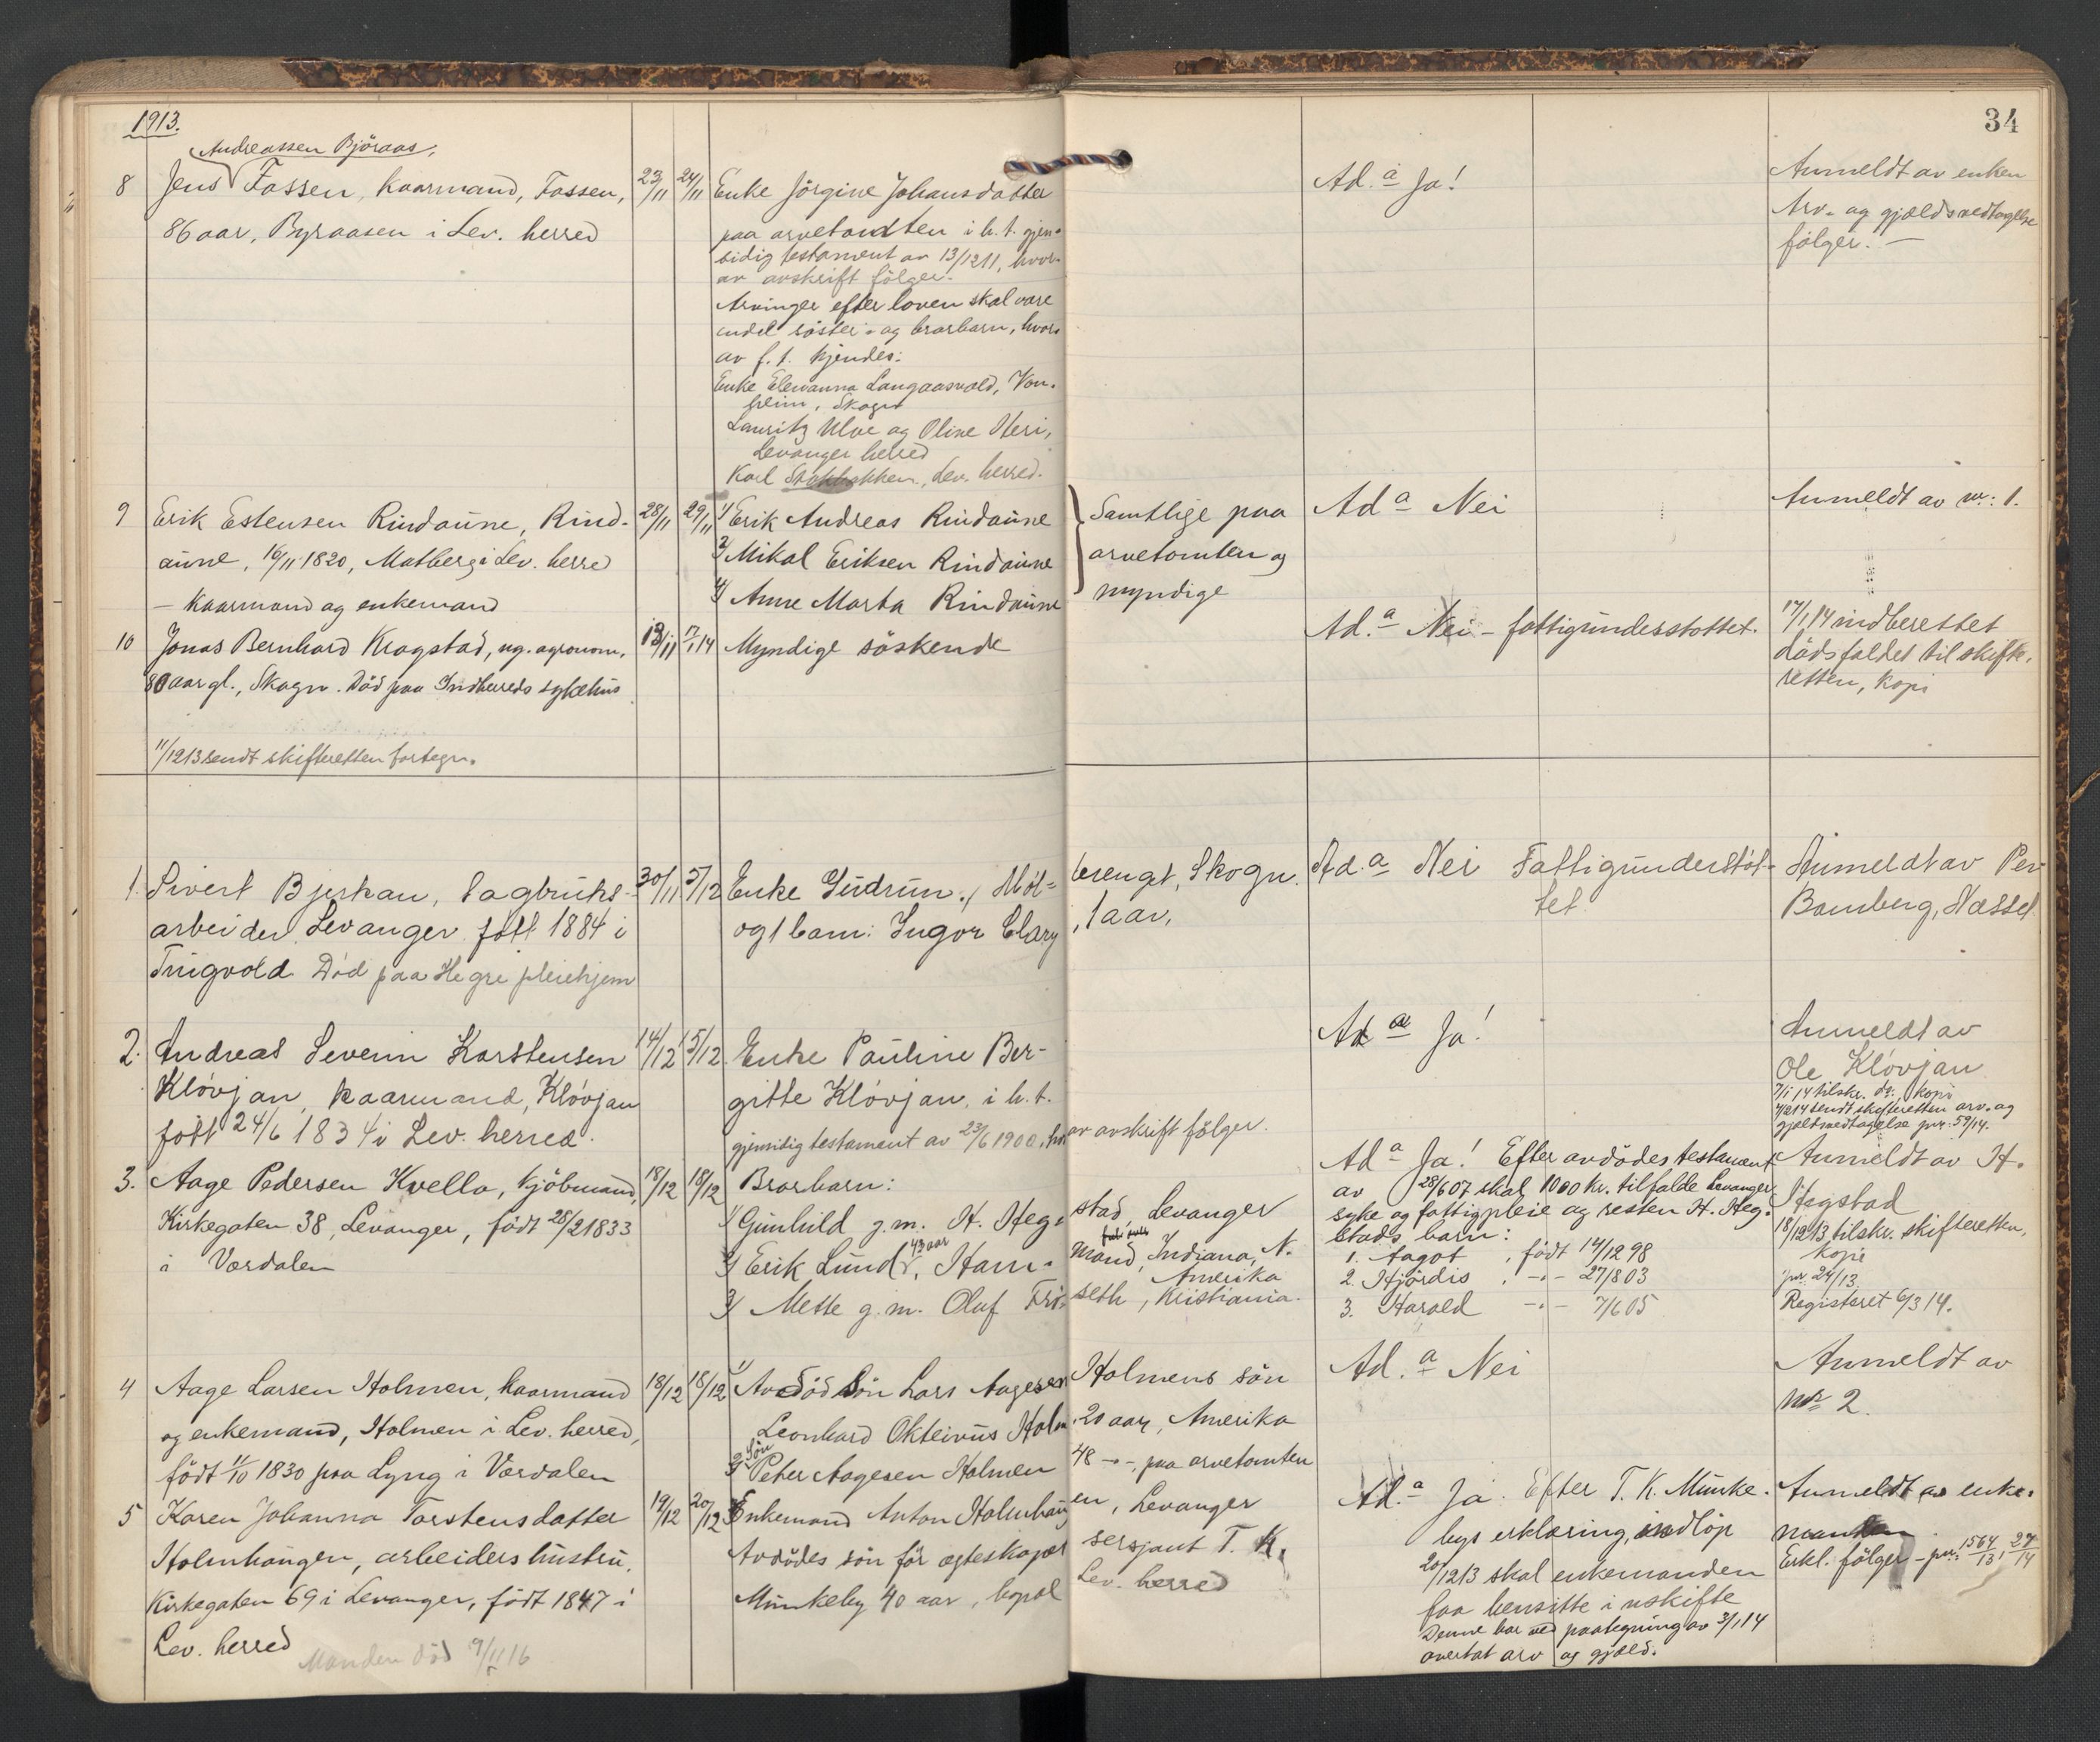 1913.
34
Andreassen Björaas,
8 Jens Fossen, kaarmand, Fossen, 23/11 24/11 Enke Jörgine Johansdatter Ad. a Ja! Anmeldt av enken
86 aar, Byraasen i Lev. herred paa arvetomten i h. t. gjen- Arv- og gjældsvedtagelse
sidig testament av 13/12 11, hvor- følger. —
av avskrift følger.
Arvinger efter loven skal være
endel söster- og brorbarn, hvor-
av f. t. kjendes:
Enke Elevanna Langaasvold, Von-
heim, Skogn
Lauritz Ulve og Oline Heri,
Levanger herred
Karl Stokbakken, Lev. herred.
9 Erik Estensen Rindaune, Rind- 28/11 29/11 1) Erik Andreas Rindaune Samtlige paa Ad a Nei Anmeldt av nr: 1.
aune, 16/11 1820, Matberg i Lev. herred 2) Mikal Eriksen Rindaune arvetomten og
— kaarmand og enkemand 4) Anne Marta Rindaune myndige
10 Jonas Bernhard Kragstad, ug. agronom, 13/11 17/1 14 Myndige söskende Ad. a Nei - fattigunderstottet. 17/1 14 indberettet
80 aar gl., Skogn. Död paa Indherreds sykehus dödsfaldet til skifte-
retten, kopi
11/12 13 sendt skifteretten fortegn.
1. Sivert Bjerkan, Sagbruks- 30/11 5/12 Enke Gudrun, Möl- berengt, Skogn. Ad. a Nei Fattigunderstöt- Anmeldt av Per
arbeider Levanger født 1884 i og 1 barn: Ingvor Clary, 1 aar, tet. Bamberg, Næssel
Tingvold Død paa Hegre pleiehjem
2. Andreas Severin Karstensen 14/12 15/12 Enke Pauline Ber- Ad a Ja! Anmeldt av
Klóvjan, kaarmand, Klóvjan gitte Klóvjan, i h. t. Ole Klóvjan
født 24/6 1834 i Lev. herred. gjensidig testament av 23/6 1900, hvor av avskrift følger. 7/1 14 tilskr. do:, kopi
7/2 14 sendt skifteretten arv- og
gjeldsvedtagelse jnr: 59/14.
3. Aage Pedersen Kvello, kjöbmand, 18/12 18/12 Brorbarn: Ad a Ja! Efter avdödes testament Anmeldt av H.
Kirkegaten 38, Levanger, født 28/2 1833 1) Gunhild g.m. H. Heg- stad, Levanger av 28/6 07 skal 1000 kr. tilfalde Levanger Hegstad
i Værdalen 2) Erik Lund, 43 aar, Ham- mand, Indiana, N. Amerika syke og fattigpleie og resten H. Heg- 18/12 13 tilskr. skifteretten,
3) Mette g.m. Oluf Frö- seth, Kristiania. stads barn: kopi
1. Aagot, født 14/12 98 jnr. 24/13.
2. Hjördis, -"- 27/8 03 Registeret 6/3 14.
3. Harald -"- 7/6 05
4 Aage Larsen Holmen, kaarmand 18/12 18/12 1) Avdöd sön Lars Aagesen Holmens sön Ad. a Nei Anmeldt av
og enkemand, Holmen i Lev. herred, Leonhard Okteivius Holm, 20 aar, Amerika nr 2.
født 11/10 1830 paa Lyng i Værdalen 2) Sön Peter Aagesen Holmen 48 -"-, paa arvetomten
5 Karen Johanna Torstensdatter 19/12 20/12 Enkemand Anton Holmhaugen, Levanger Ad. a Ja. Efter T. K. Munke- Anmeldt av enke-
Holmhaugen, arbeiders hustru, Avdödes sön för ægteskapet sersjant T. K. bys erklæring, indlöp manden.
Kirkegaten 69 i Levanger, født 1847 i Munkeby 40 aar, bopæl Lev. herred 20/12 13 skal enkemanden Erkl. følger - jnr: 1564/13, 27/14
Lev. herred faa hensitte i uskifte
Manden död 9/11 16 Denne har ved paategning av 3/1 14
overtat arv og gjæld.